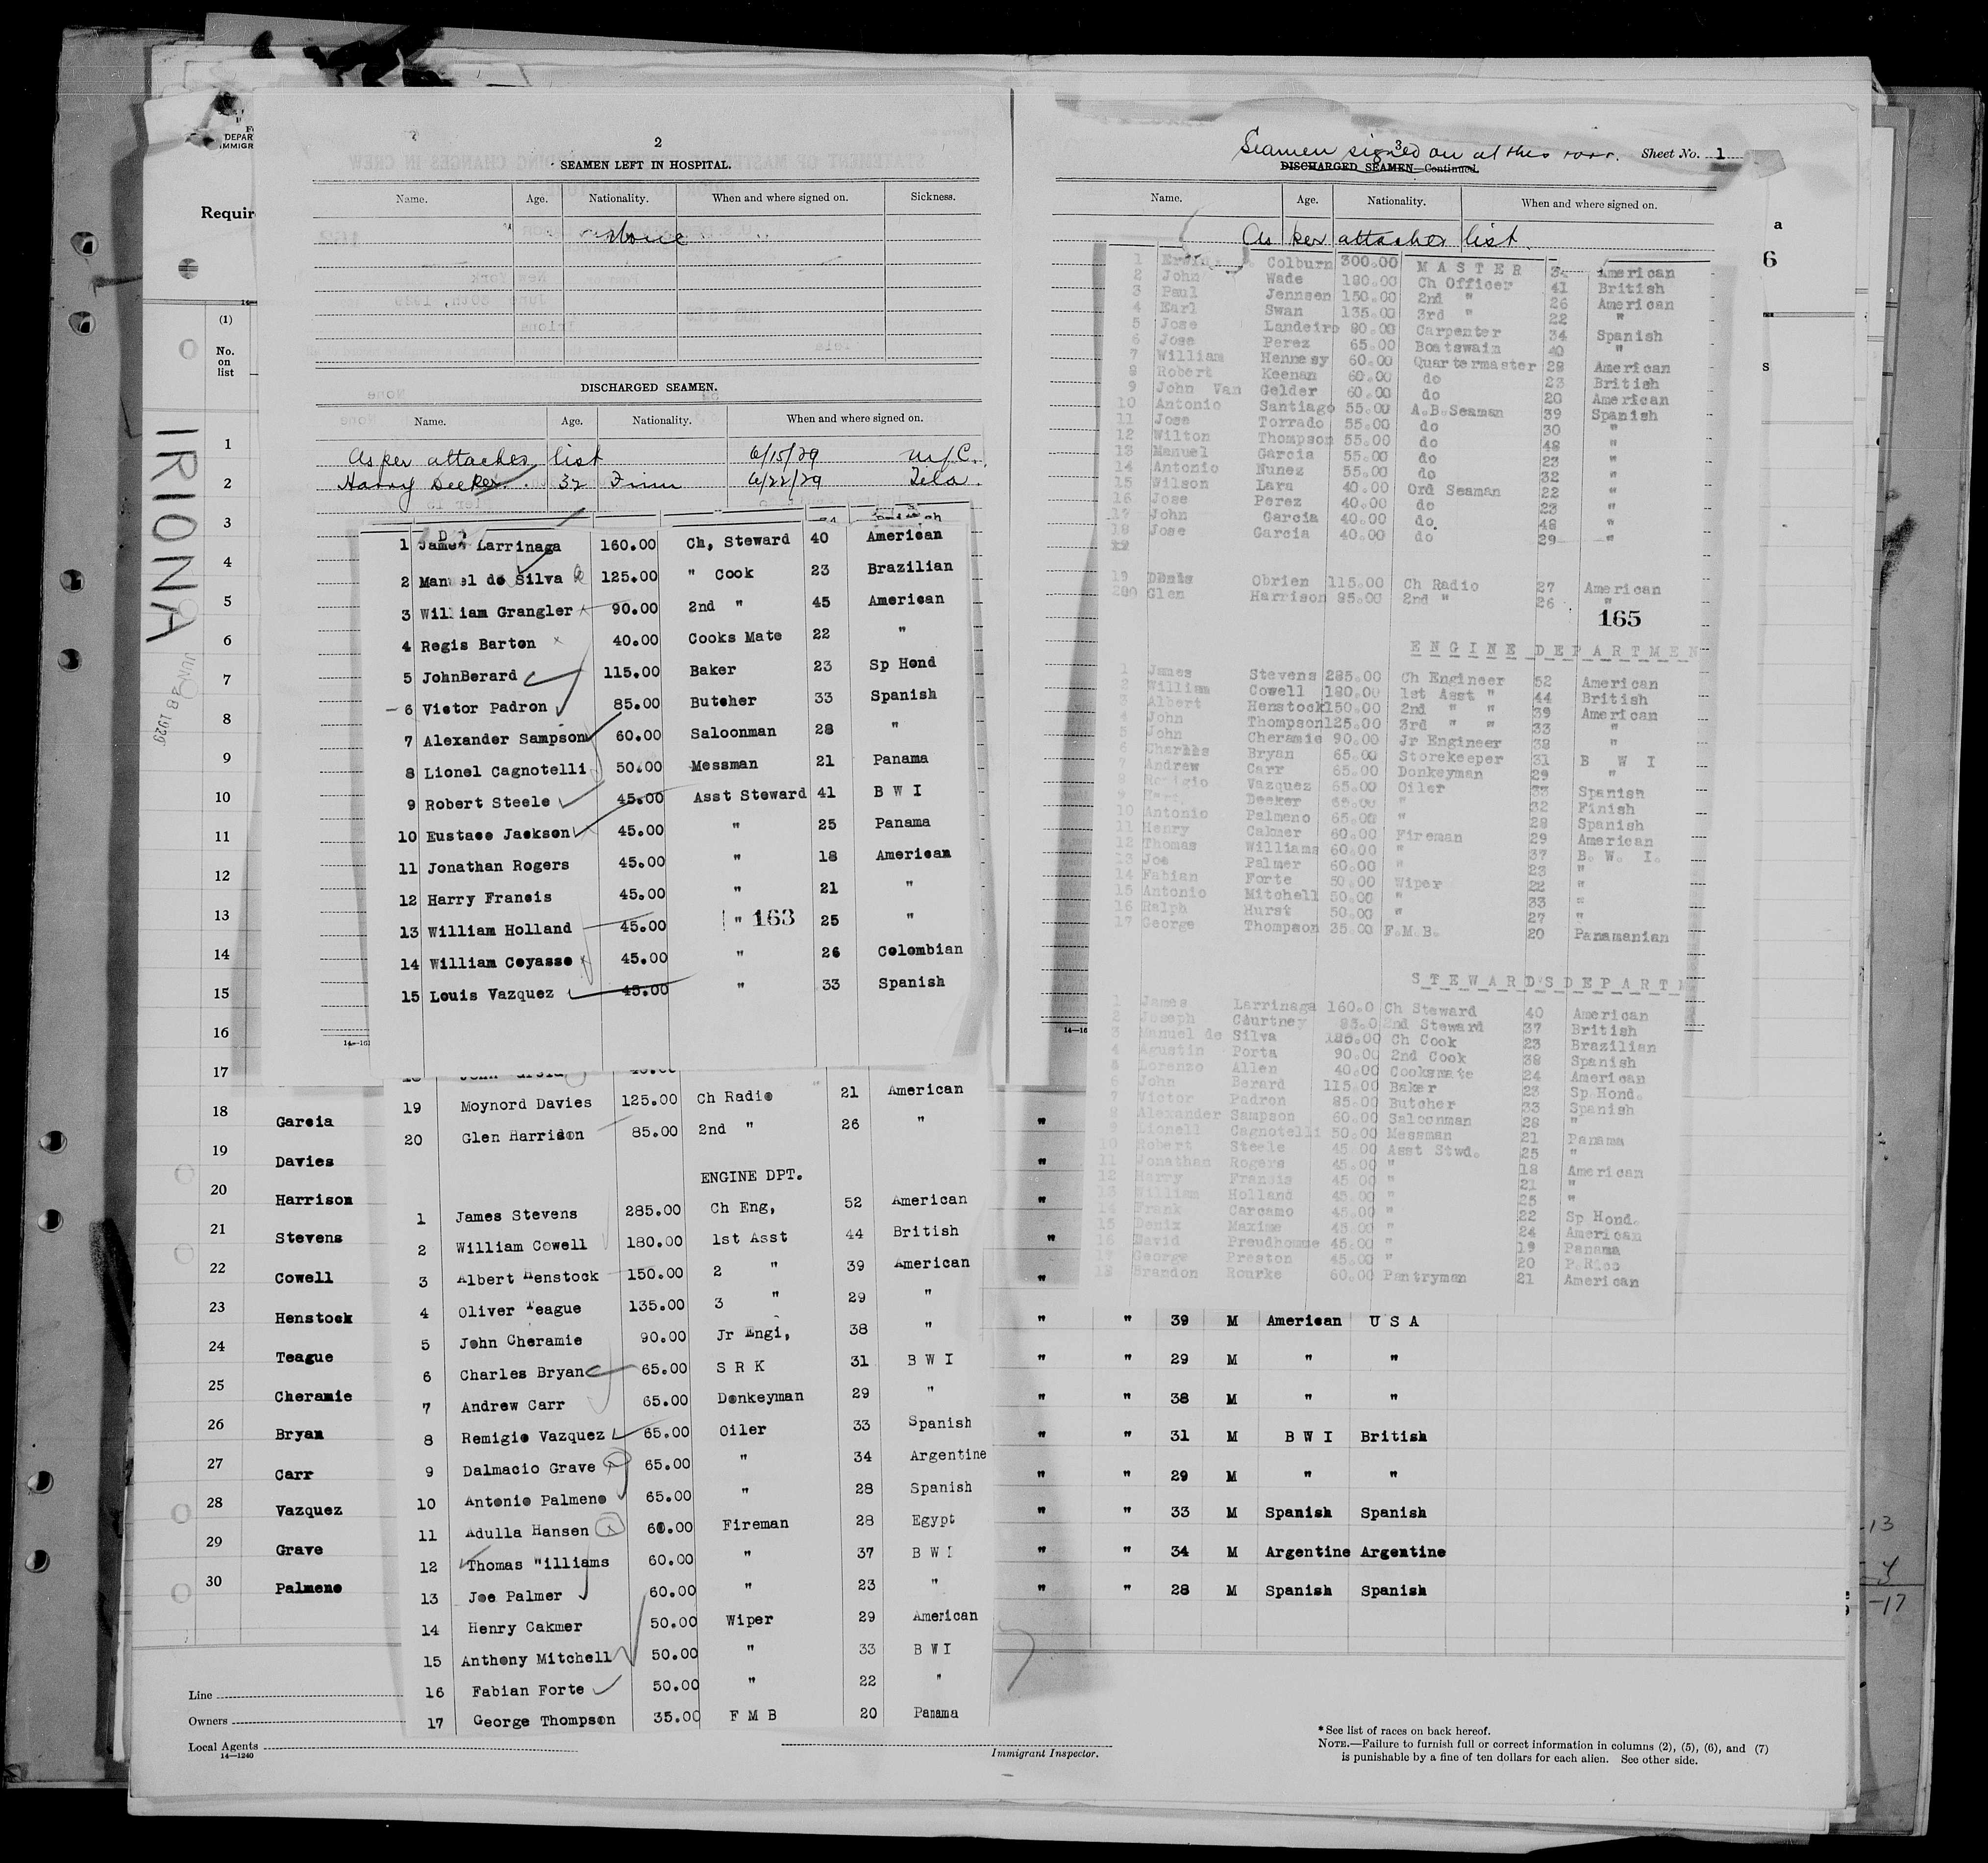 2
SEAMEN LEFT IN HOSPITAL.
Name. Age. Nationality. When and where signed on. Sickness.
None
DISCHARGED SEAMEN.
Name. Age. Nationality. When and where signed on.
As per attached list 6/15/29 N/C.
Harry Deeker. 32 Finn 6/22/29 Tela.
1 James Larrinaga 160.00 Ch, Steward 40 American
2 Manuel de Silva 125.00 " Cook 23 Brazilian
3 William Grangler 90.00 2nd " 45 American
4 Regis Barton 40.00 Cooks Mate 22 "
5 JohnBerard 115.00 Baker 23 Sp Hond
6 Victor Padron 85.00 Butcher 33 Spanish
7 Alexander Sampson 60.00 Saloonman 28 "
8 Lionel Cagnotelli 50.00 Messman 21 Panama
9 Robert Steele 45.00 Asst Steward 41 B W I
10 Eustace Jackson 45.00 " 25 Panama
11 Jonathan Rogers 45.00 " 18 American
12 Harry Francis 45.00 " 21 "
13 William Holland 45.00 " 163 25 "
14 William Coyasso 45.00 " 26 Colombian
15 Louis Vazquez 45.00 " 33 Spanish
19 Moynord Davies 125.00 Ch Radio 21 American
20 Glen Harrison 85.00 2nd " 26 "
ENGINE DPT.
1 James Stevens 285.00 Ch Eng, 52 American
2 William Cowell 180.00 1st Asst 44 British
3 Albert Henstock 150.00 2 " 39 American
4 Oliver Teague 135.00 3 " 29 "
5 John Cheramie 90.00 Jr Engi, 38 "
6 Charles Bryan 65.00 S R K 31 B W I
7 Andrew Carr 65.00 Donkeyman 29 "
8 Remigio Vazquez 65.00 Oiler 33 Spanish
9 Dalmacio Grave 65.00 " 34 Argentine
10 Antonio Palmeno 65.00 " 28 Spanish
11 Adulla Hansen 60.00 Fireman 28 Egypt
12 Thomas Williams 60.00 " 37 B W I
13 Joe Palmer 60.00 " 23 "
14 Henry Cakmer 50.00 Wiper 29 American
15 Anthony Mitchell 50.00 " 33 B W I
16 Fabian Forte 50.00 " 22 "
17 George Thompson 35.00 F M B 20 Panama
3
Seamen signed on at this port. Sheet No. 1
DISCHARGED SEAMEN—Continued.
Name. Age. Nationality. When and where signed on.
As per attached list.
1 Colburn 300.00 MASTER American
2 John Wade 180.00 Ch Officer 41 British
3 Paul Jennsen 150.00 2nd " 26 American
4 Earl Swan 135.00 3rd " 22 "
5 Jose Landeiro 80.00 Carpenter 34 Spanish
6 Jose Perez 65.00 Boatswain 40 "
7 William Hennesy 60.00 Quartermaster 28 American
8 Robert Keenan 60.00 do 23 British
9 John Van Gelder 60.00 do 20 American
10 Antonio Santiago 55.00 A.B.Seaman 39 Spanish
11 Jose Torrado 55.00 do 30 "
12 Wilton Thompson 55.00 do 48 "
13 Manuel Garcia 55.00 do 23 "
14 Antonio Nunez 55.00 do 32 "
15 Wilson Lara 40.00 Ord Seaman 22 "
16 Jose Perez 40.00 do 23 "
17 John Garcia 40.00 do 48 "
18 Jose Garcia 40.00 do 29 "
19 Obrien 115.00 Ch Radio 27 American
Glen Harrison 85.00 2nd " 26 "
165
ENGINE DEPARTMEN
1 James Stevens 285.00 Ch Engineer 52 American
2 William Cowell 180.00 1st Asst " 44 British
3 Albert Henstock 150.00 2nd " " 39 American
4 John Thompson 125.00 3rd " " 33 "
5 John Cheramie 90.00 Jr Engineer 38 "
6 Charles Bryan 65.00 Storekeeper 31 B W I
7 Andrew Carr 65.00 Donkeyman 29 "
8 Remigio Vazquez 65.00 Oiler 33 Spanish
9 Deeker 65.00 " 32 Finish
10 Antonio Palmeno 65.00 " 28 Spanish
11 Henry Cakmer 60.00 Fireman 29 American
12 Thomas Williams 60.00 " 37 B. W. I.
13 Joe Palmer 60.00 " 23 "
14 Fabian Forte 50.00 Wiper 22 "
15 Antonio Mitchell 50.00 " 33 "
16 Ralph Hurst 50.00 " 27 "
17 George Thompson 35.00 F.M.B. 20 Panamanian
STEWARD'S DEPART
1 James Larrinaga 160.0 Ch Steward 40 American
2 Joseph Courtney 2nd Steward 37 British
3 Manuel de Silva Ch Cook 23 Brazilian
4 Agustin Porta 90.00 2nd Cook 38 Spanish
5 Lorenzo Allen 40.00 Cooksmate 24 American
6 John Berard 115.00 Baker 23 Sp.Hond.
7 Victor Padron 85.00 Butcher 33 Spanish
8 Alexander Sampson 60.00 Saloonman 28 "
9 Lionell Cagnotelli 50.00 Messman 21 Panama
10 Robert Steele 45.00 Asst Stwd. 25 "
11 Jonathan Rogers 45.00 " 18 American
12 Harry Francis 45.00 " 21 "
13 William Holland 45.00 " 25 "
14 Frank Carcamo 45.00 " 22 Sp Hond.
15 Denix Maxime 45.00 " 24 American
16 David Preudhomme 45.00 " 19 Panama
17 George Preston 45.00 " 20 P.Rico
18 Brandon Rourke 60.00 Pantryman 21 American
DEPAR
IMMIGR
Requir
IRIONA
JUN 28 1929
(1)
No.
on
list
1
2
3
4
5
6
7
8
9
10
11
12
13
14
15
16
17
18 Garcia "
19 Davies "
20 Harrison "
21 Stevens "
22 Cowell "
23 Henstock " " 39 M American U S A
24 Teague " " 29 M " "
25 Cheramie " " 38 M " "
26 Bryan " " 31 M B W I British
27 Carr " " 29 M " "
28 Vazquez " " 33 M Spanish Spanish
29 Grave " " 34 M Argentine Argentine
30 Palmeno " " 28 M Spanish Spanish
Line
Owners
Local Agents
14—1240
Immigrant Inspector.
*See list of races on back hereof.
NOTE.—Failure to furnish full or correct information in columns (2), (5), (6), and (7)
is punishable by a fine of ten dollars for each alien. See other side.